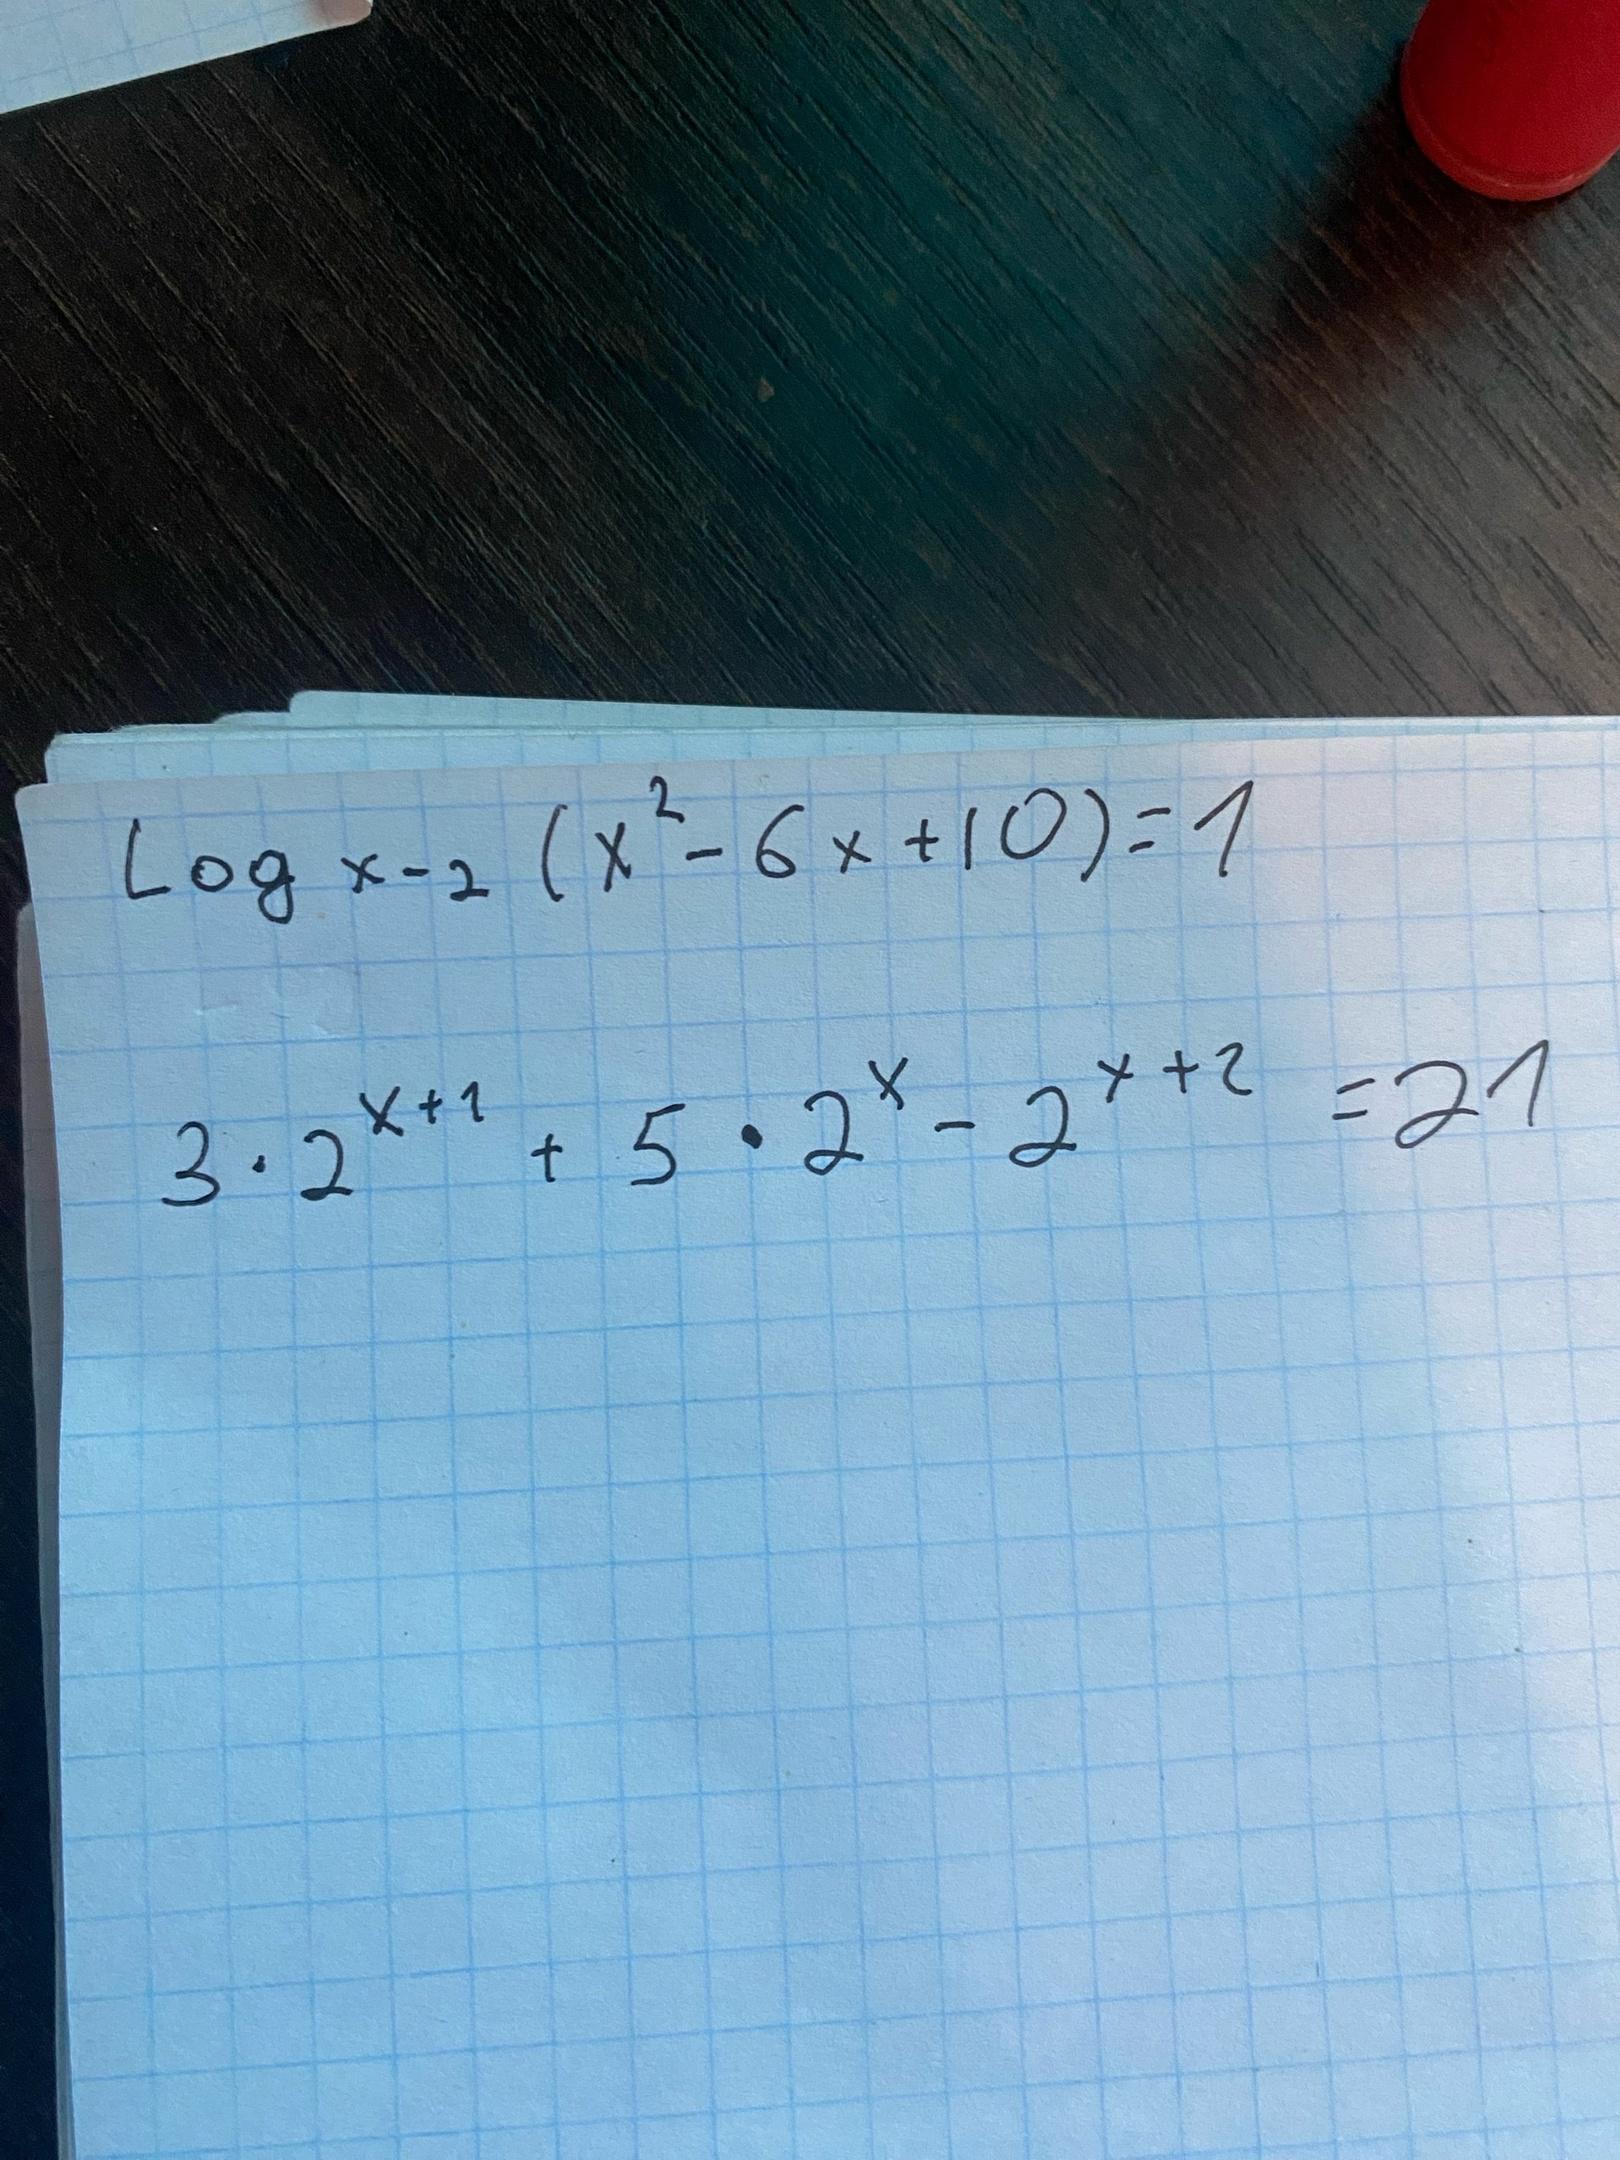 Log x-2 (x²-6x+10)=1
3·2^x+1 + 5·2^x - 2^x+2 =21